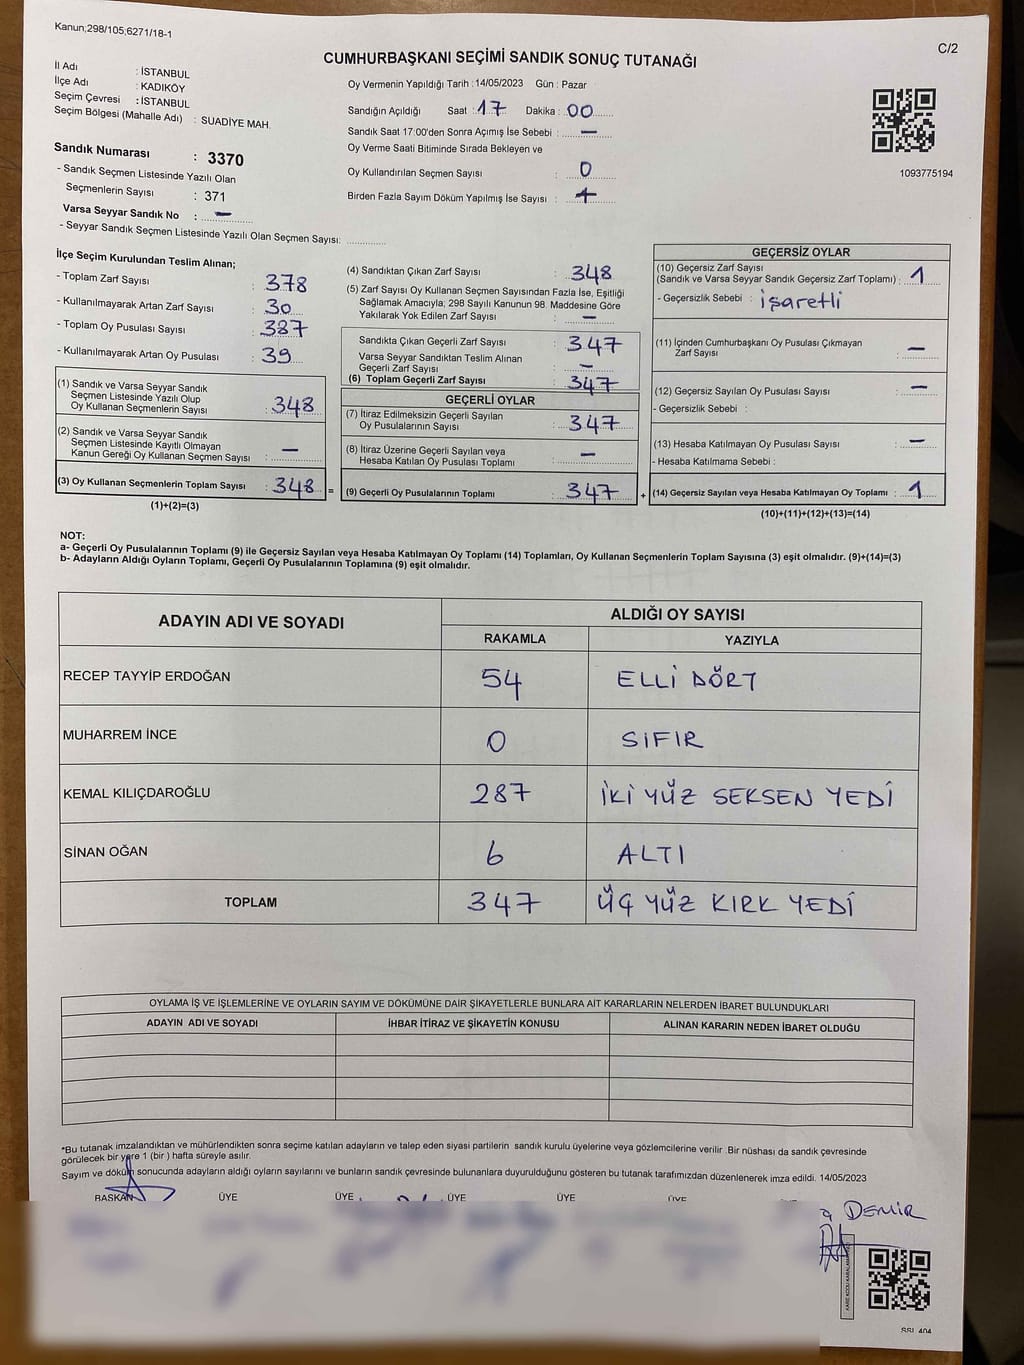 Kanun;298/105;6271/18-1
C/2
CUMHURBAŞKANI SEÇİMİ SANDIK SONUÇ TUTANAĞI
İl Adı : İSTANBUL
İlçe Adı : KADIKÖY
Seçim Çevresi : İSTANBUL
Seçim Bölgesi (Mahalle Adı) : SUADİYE MAH.
Sandık Numarası : 3370
- Sandık Seçmen Listesinde Yazılı Olan
Seçmenlerin Sayısı : 371
Varsa Seyyar Sandık No : —
- Seyyar Sandık Seçmen Listesinde Yazılı Olan Seçmen Sayısı: ............
Oy Vermenin Yapıldığı Tarih : 14/05/2023 Gün : Pazar
Sandığın Açıldığı Saat : 17 Dakika : 00
Sandık Saat 17:00'den Sonra Açımış İse Sebebi : —
Oy Verme Saati Bitiminde Sırada Bekleyen ve
Oy Kullandırılan Seçmen Sayısı : 0
Birden Fazla Sayım Döküm Yapılmış İse Sayısı :
1093775194
İlçe Seçim Kurulundan Teslim Alınan;
- Toplam Zarf Sayısı : 378
- Kullanılmayarak Artan Zarf Sayısı : 30
- Toplam Oy Pusulası Sayısı : 387
- Kullanılmayarak Artan Oy Pusulası : 39
(1) Sandık ve Varsa Seyyar Sandık
Seçmen Listesinde Yazılı Olup
Oy Kullanan Seçmenlerin Sayısı : 348
(2) Sandık ve Varsa Seyyar Sandık
Seçmen Listesinde Kayıtlı Olmayan
Kanun Gereği Oy Kullanan Seçmen Sayısı : —
(3) Oy Kullanan Seçmenlerin Toplam Sayısı : 348 =
(1)+(2)=(3)
(4) Sandıktan Çıkan Zarf Sayısı : 348
(5) Zarf Sayısı Oy Kullanan Seçmen Sayısından Fazla İse, Eşitliği
Sağlamak Amacıyla; 298 Sayılı Kanunun 98. Maddesine Göre
Yakılarak Yok Edilen Zarf Sayısı : —
Sandıkta Çıkan Geçerli Zarf Sayısı : 347
Varsa Seyyar Sandıktan Teslim Alınan
Geçerli Zarf Sayısı : —
(6) Toplam Geçerli Zarf Sayısı : 347
GEÇERLİ OYLAR
(7) İtiraz Edilmeksizin Geçerli Sayılan
Oy Pusulalarının Sayısı : 347
(8) İtiraz Üzerine Geçerli Sayılan veya
Hesaba Katılan Oy Pusulası Toplamı : —
(9) Geçerli Oy Pusulalarının Toplamı : 347 +
GEÇERSİZ OYLAR
(10) Geçersiz Zarf Sayısı
(Sandık ve Varsa Seyyar Sandık Geçersiz Zarf Toplamı) : 1
- Geçersizlik Sebebi : işaretli
(11) İçinden Cumhurbaşkanı Oy Pusulası Çıkmayan
Zarf Sayısı : —
(12) Geçersiz Sayılan Oy Pusulası Sayısı : —
- Geçersizlik Sebebi :
(13) Hesaba Katılmayan Oy Pusulası Sayısı : —
- Hesaba Katılmama Sebebi :
(14) Geçersiz Sayılan veya Hesaba Katılmayan Oy Toplamı : 1
(10)+(11)+(12)+(13)=(14)
NOT:
a- Geçerli Oy Pusulalarının Toplamı (9) ile Geçersiz Sayılan veya Hesaba Katılmayan Oy Toplamı (14) Toplamları, Oy Kullanan Seçmenlerin Toplam Sayısına (3) eşit olmalıdır. (9)+(14)=(3)
b- Adayların Aldığı Oyların Toplamı, Geçerli Oy Pusulalarının Toplamına (9) eşit olmalıdır.
ADAYIN ADI VE SOYADI ALDIĞI OY SAYISI
RAKAMLA YAZIYLA
RECEP TAYYİP ERDOĞAN 54 ELLİ DÖRT
MUHARREM İNCE 0 SIFIR
KEMAL KILIÇDAROĞLU 287 İKİ YÜZ SEKSEN YEDİ
SİNAN OĞAN 6 ALTI
TOPLAM 347 ÜÇ YÜZ KIRK YEDİ
OYLAMA İŞ VE İŞLEMLERİNE VE OYLARIN SAYIM VE DÖKÜMÜNE DAİR ŞİKAYETLERLE BUNLARA AİT KARARLARIN NELERDEN İBARET BULUNDUKLARI
ADAYIN ADI VE SOYADI İHBAR İTİRAZ VE ŞİKAYETİN KONUSU ALINAN KARARIN NEDEN İBARET OLDUĞU
*Bu tutanak imzalandıktan ve mühürlendikten sonra seçime katılan adayların ve talep eden siyasi partilerin sandık kurulu üyelerine veya gözlemcilerine verilir. Bir nüshası da sandık çevresinde
görülecek bir yere 1 (bir ) hafta süreyle asılır.
Sayım ve döküm sonucunda adayların aldığı oyların sayılarını ve bunların sandık çevresinde bulunanlara duyurulduğunu gösteren bu tutanak tarafımızdan düzenlenerek imza edildi. 14/05/2023
BAŞKAN ÜYE ÜYE ÜYE ÜYE ÜYE
DEMİR